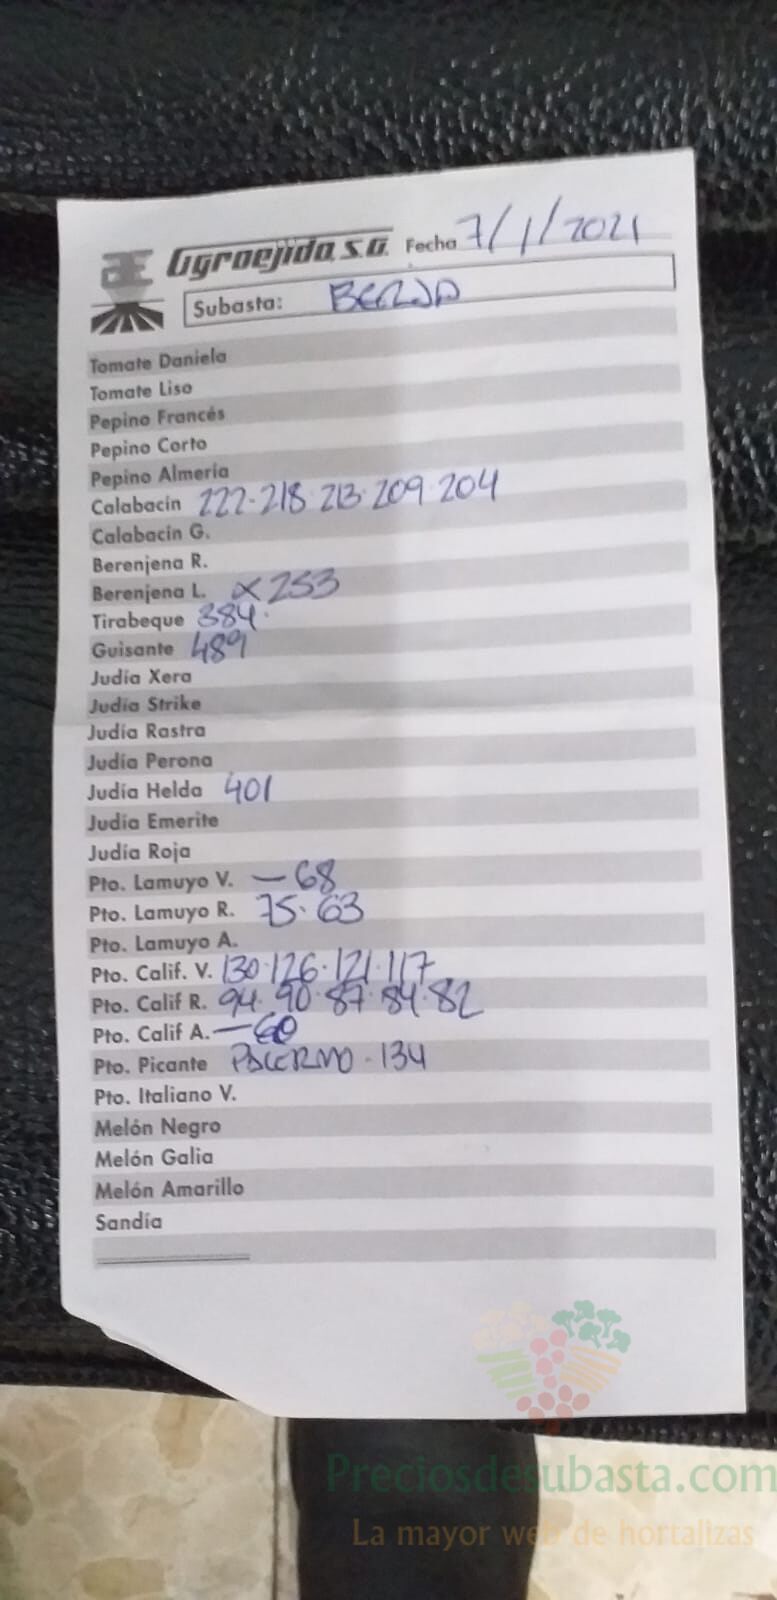 Agroejido, S.A. Fecha 7/1/2021
Subasta: BERJA
Tomate Daniela
Tomate Liso
Pepino Francés
Pepino Corto
Pepino Almería
Calabacín 222-218·213·209·204
Calabacín G.
Berenjena R.
Berenjena L. x 253
Tirabeque 384·
Guisante 489
Judía Xera
Judía Strike
Judía Rastra
Judía Perona
Judía Helda 401
Judía Emerite
Judía Roja
Pto. Lamuyo V. — 68
Pto. Lamuyo R. 75·63
Pto. Lamuyo A.
Pto. Calif. V. 130·126·121·117
Pto. Calif R. 94·90·87·84·82
Pto. Calif A. — 60
Pto. Picante PALERMO · 134
Pto. Italiano V.
Melón Negro
Melón Galia
Melón Amarillo
Sandía
Preciosdesubasta.com
La mayor web de hortalizas